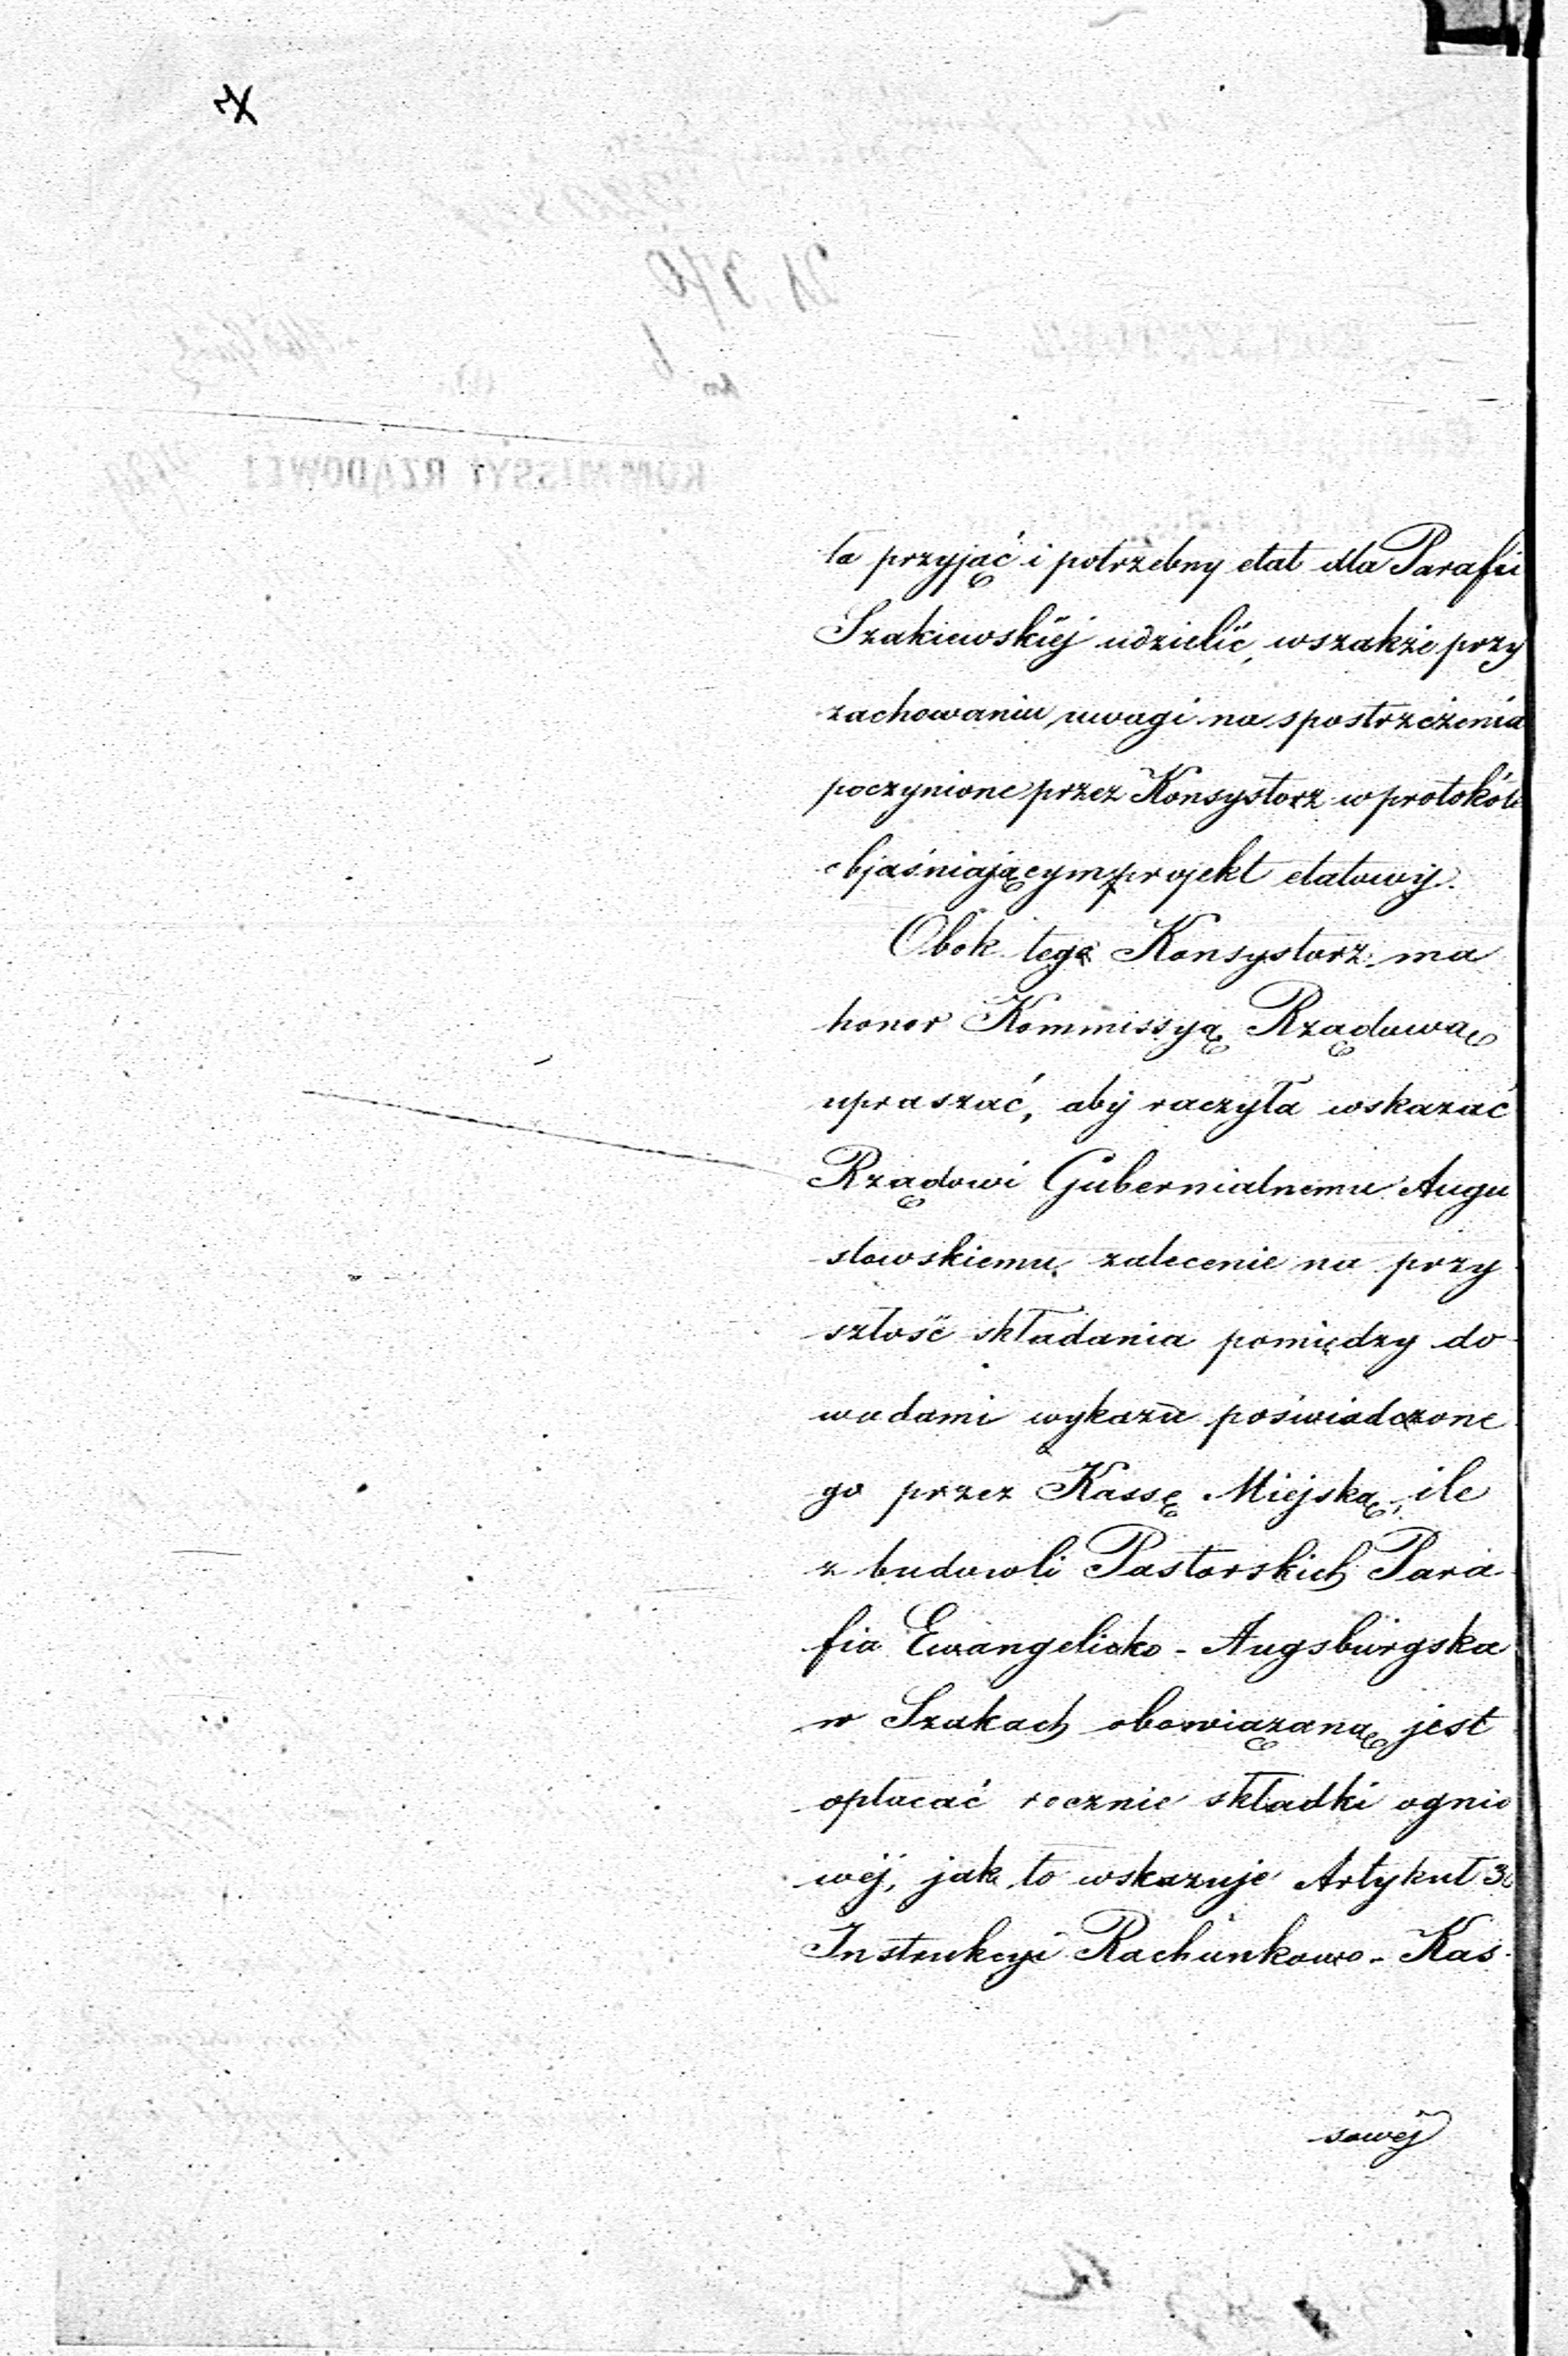 ła przyjąć i potrzebny etat dla Parafii
Szakiewskiéj udzielić, wszakże przy
zachowaniu uwagi na spostrzeżenia
poczynione przez Konsystorz w protokóle
objaśniającym projekt etatowy.
Obok tego Konsystorz ma
honor Kommissyą Rządową
upraszać, aby raczyła wskazać
Rządowi Gubernialnemu Augu
stowskiemu zalecenie na przy
szłość składania pomiędzy do
wodami wykazu poświadczone
go przez Kassę Miejską, ile
z budowli Pastorskich Para
fia Ewangelicko - Augsburgska
w Szakach obowiązaną jest
opłacać rocznie składki ognio
wéj, jak to wskazuje Artykuł
Instrukcyi Rachunkowo - Kas-
sowéj
KOMMISSYI RZĄDOWEJ